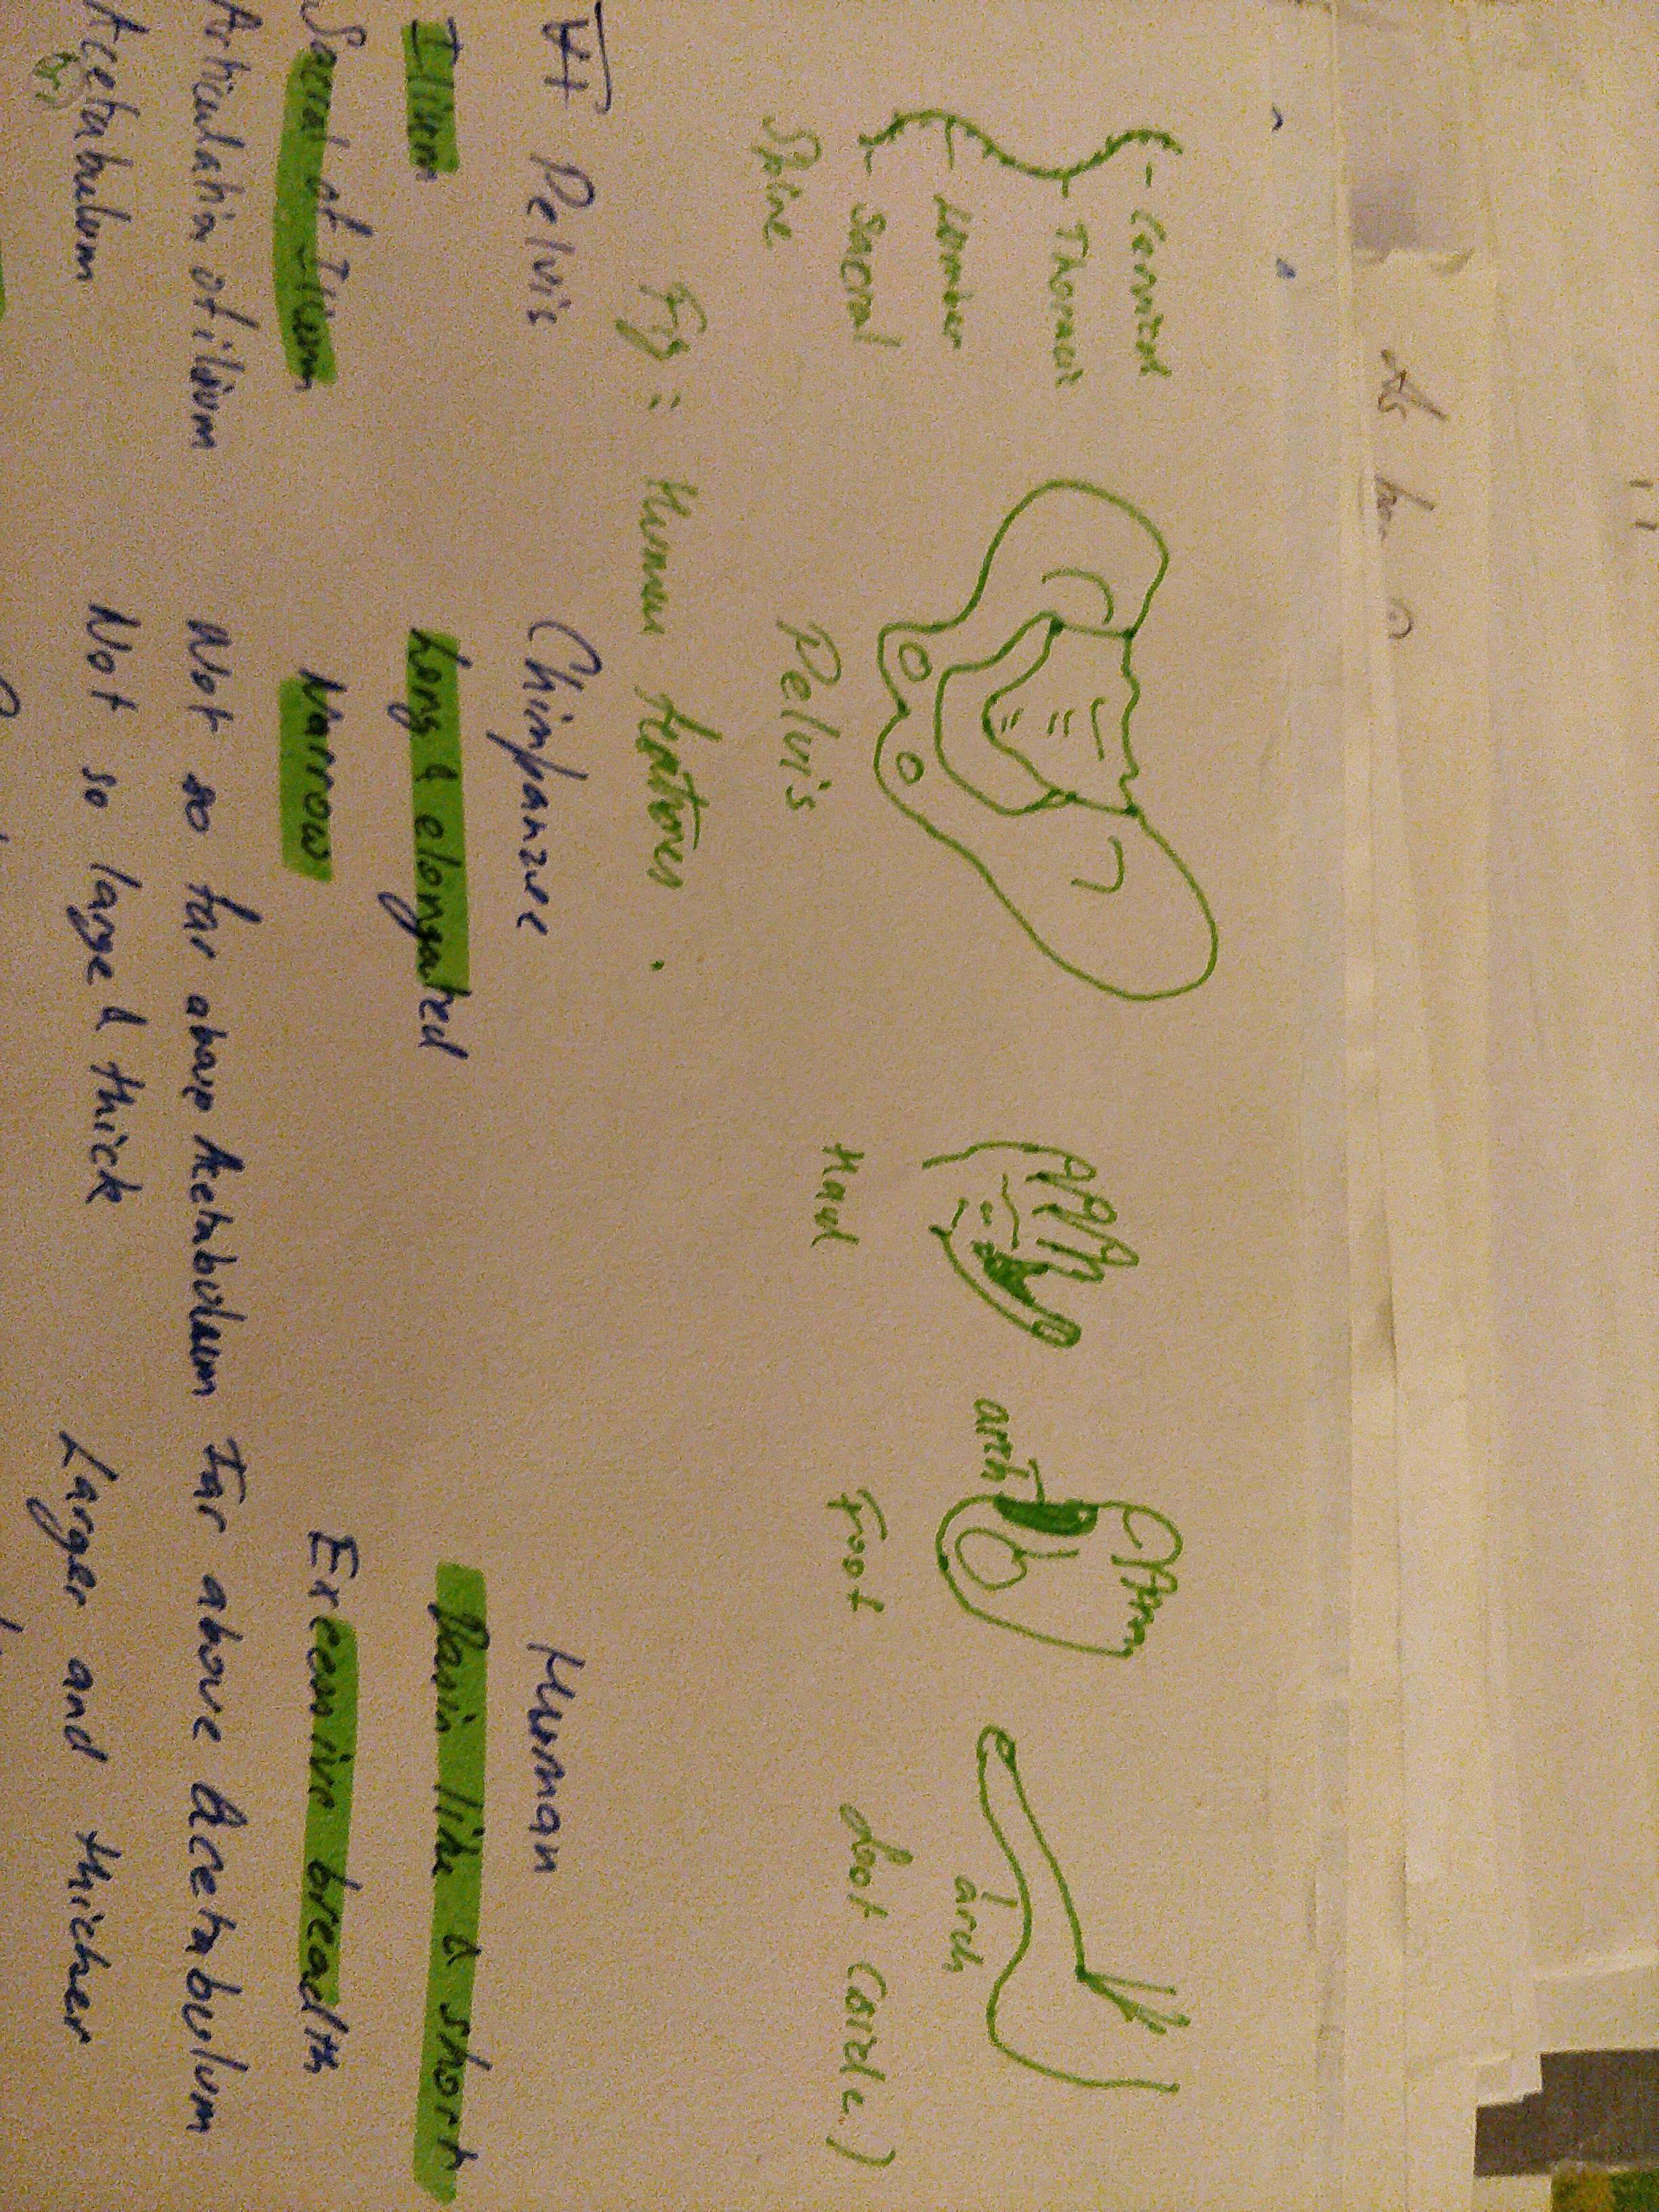 Cervical
Thoracic
Lumbar
Sacral
arch
arch
Spine
Pelvis
Hand
Foot
Foot (side)
Fig: Human features.
Pelvis Chimpanzee Human
Ilium Long & elongated Basin like & short
Sacral of Ilium Narrow Excessive breadth
Articulation of ilium Not so far above Acetabulum Far above Acetabulum
Acetabulum Not so large & thick Larger and thicker